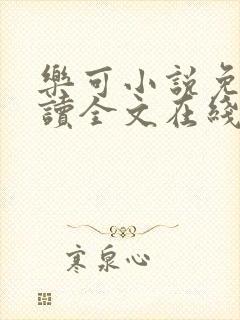 樂可小說免
讀全文在綫
寒泉心